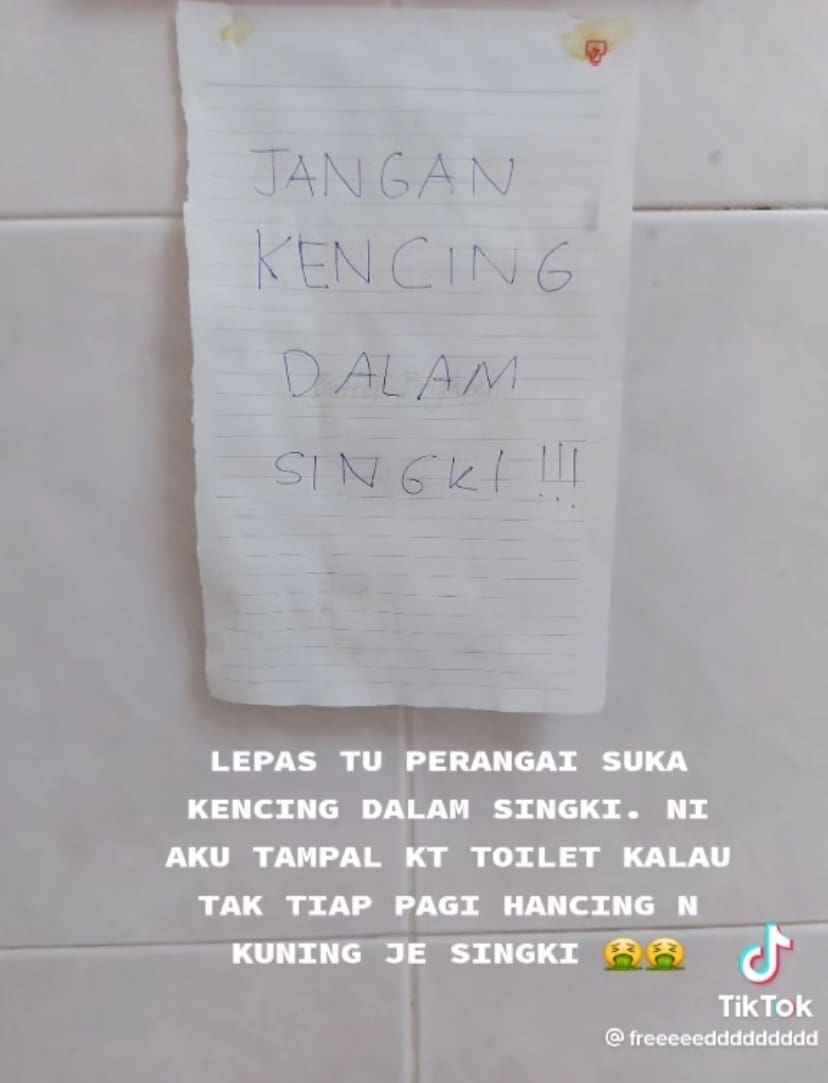 JANGAN
KENCING
DALAM
SINGKI!!!
LEPAS TU PERANGAI SUKA
KENCING DALAM SINGKI. NI
AKU TAMPAL KT TOILET KALAU
TAK TIAP PAGI HANCING N
KUNING JE SINGKI 🤮🤮
TikTok
@freeeeedddddddddd